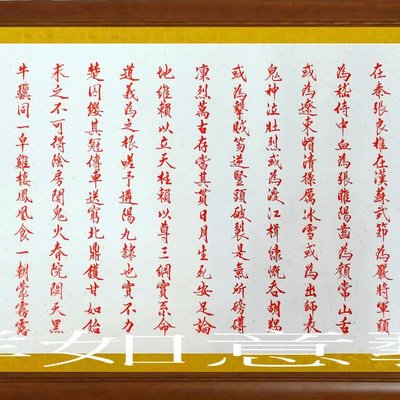 在秦張良椎在漢蘇武節為嚴將軍頭
為嵇侍中血為張睢陽齒為顏常山舌
或為遼東帽清操厲冰雪或為出師表
鬼神泣壯烈或為渡江楫慷慨吞胡羯
或為擊賊笏逆豎頭破裂是氣所磅礡
凜烈萬古存當其貫日月生死安足論
地維賴以立天柱賴以尊三綱實系命
道義為之根嗟予遘陽九隸也實不力
楚囚纓其冠傳車送窮北鼎鑊甘如飴
求之不可得陰房闃鬼火春院閟天黑
牛驥同一皁雞棲鳳凰食一朝蒙霧露
如意